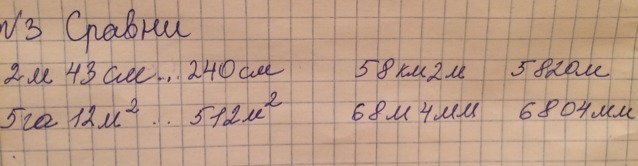 №3 Сравни
2м 43 см... 240 см 58 км 2м 5820м
5 га 12 м² .. 512 м² 68 м 4 мм 6804 мм